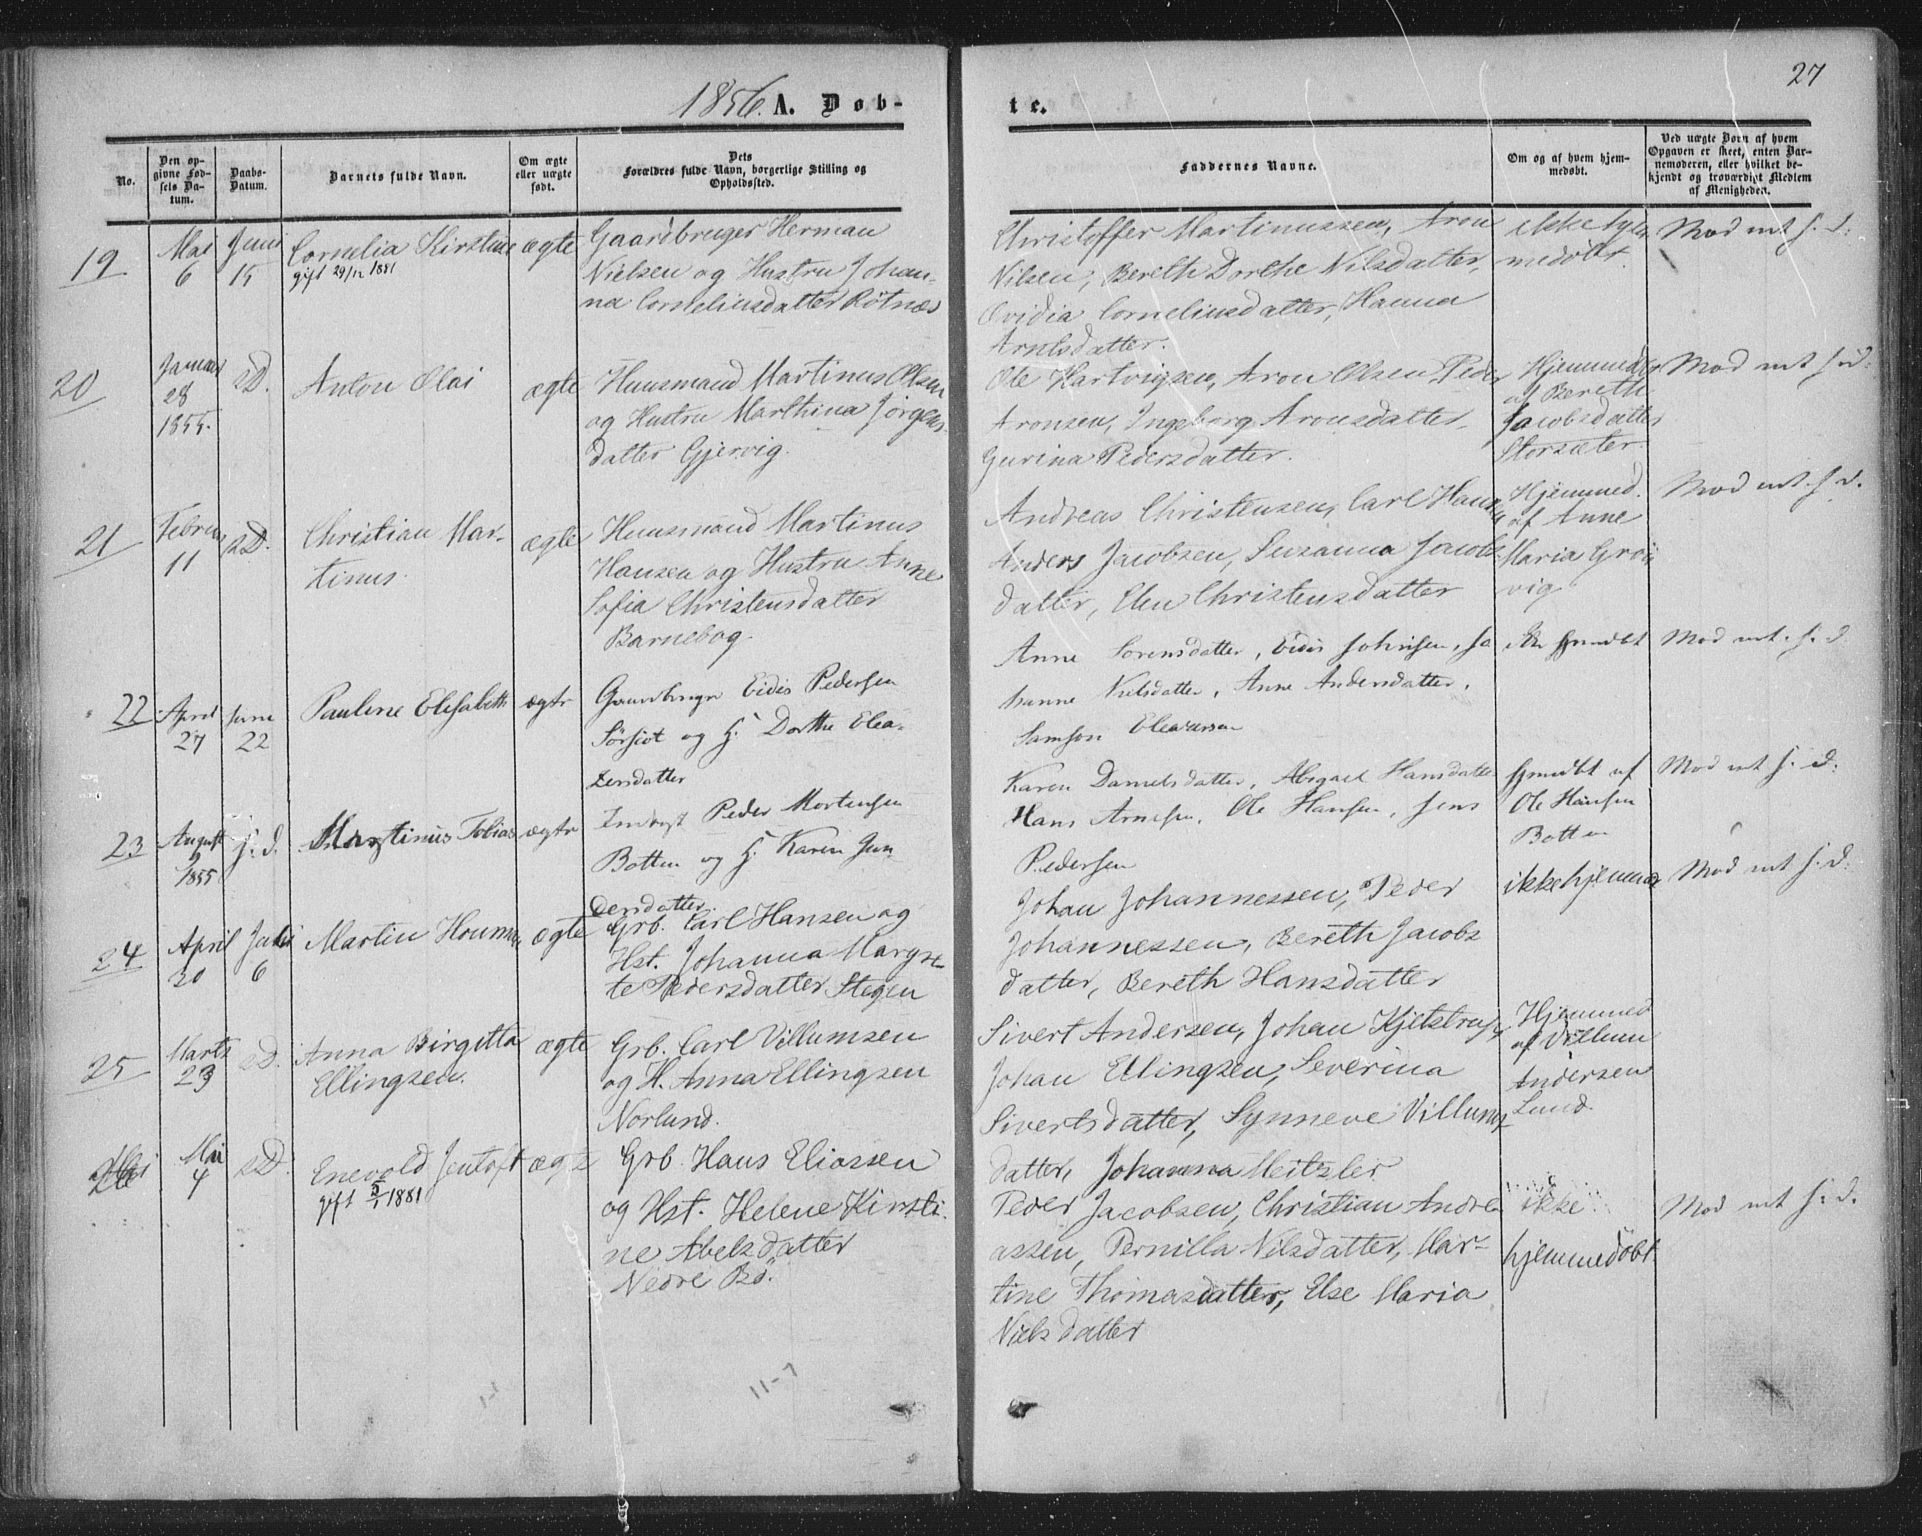 27
1856. A. Dob-
te.
No.
Den op-
givne Fød-
sels Da-
tum.
Daabs-
Datum.
Barnets fulde Navn.
Om ægte
eller uægte
født.
Dets
Forældres fulde Navn, borgerlige Stilling og
Opholdssted.
Faddernes Navne.
Om og af hvem hjem-
medøbt.
Ved uægte Børn af hvem
Opgaven er skeet, enten Bar-
nemoderen, eller hvilket be-
kjendt og troværdigt Medlem
af Menigheden.
19
Mai
6
Juni
15
Cornelia Kirstine
gift 29/12 1881
ægte
Gaardbruger Herman
Nielsen og Hustru Johan-
na Corneliusdatter Rötnæs
Christoffer Martinussen, Aron
Nilsen, Bereth Dorthe Nilsdatter,
Ovidia Corneliusdatter, Hanna
Arntsdatter.
ikke hjem
medöbt.
Mod
20
Januar
28
1855.
s D.
Anton Olai
ægte
Huusmand Martinus Olsen
og Hustru Marthina Jörgens-
datter Gjervig.
Ole Hartvigsen, Aron Olsen, Peder
Aronsen, Ingeborg Aronsdatter,
Gurina Pedersdatter.
Hjemmed
af Bereth
Jacobsdatter
Storsæter.
Mod
21
Februar
11
s D.
Christian Mar-
tinus.
ægte
Huusmand Martinus
Hansen og Hustru Anne
Sofia Christensdatter
Barnebog.
Andreas Christensen, Carl Hansen
Anders Jacobsen, Susanna Jacobs
datter, Elen Christensdatter
Hjemmed.
af Anne
Maria Gröt
vig
Mod
22
April
27
June
22
Pauline Elisabeth
ægte
Gaardbruger Eidis Pedersen
Sörfiot og H. Dorthe Elea-
zersdatter
Anne Sorensdatter, Eidis Johnsen, Jo
hanne Nielsdatter, Anne Andersdatter,
Samson Eleazarsen
Mod
23
August
2
1855
s. d.
Martinus Tobias
ægte
Inderst Peder Mortensen
Botten og H. Karen Gun-
dersdatter.
Karen Danielsdatter, Abigael Hansdatter
Hans Arnesen, Ole Hansen, Jens
Pedersen
hjmdbt af
Ole Hansen
Botten
Mod
24
April
30
Juli
6
Martin Houman
ægte
Grb. Carl Hansen og
Hst. Johanna Margre-
te Pedersdatter Stegen
Johan Johannessen, Peder
Johannessen, Bereth Jacobs
datter, Bereth Hansdatter
ikke hjemmed
Mod
25
Marts
23
s D.
Anna Birgitta
Ellingsen.
ægte
Grb. Carl Villumsen
og H. Anna Ellingsen
Norlund.
Sivert Andersen, Johan Kjelstrup,
Johan Ellingsen, Severina
Sivertsdatter, Synneve Villums
datter, Johanna Meitzler
Hjemmed
af Villum
Andersen
Lund.
26
Mai
4
s D.
Enevold Jentoft
gift 5/1 1881
ægte
Grb. Hans Eliassen
og Hst. Helene Kirsti-
ne Abelsdatter
Nedre Bö.
Peder Jacobsen, Christian Andre
assen, Pernilla Nilsdatter, Mar-
tine Thomasdatter, Else Maria
Nielsdatter
ikke
hjemmedöbt.
Mod
11-7